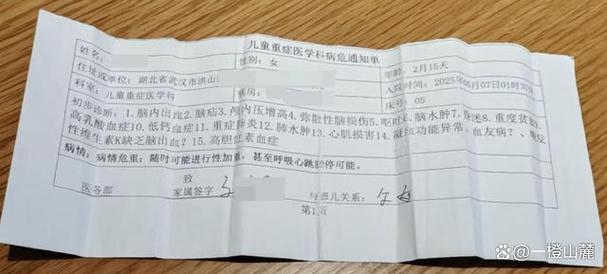 儿童重症医学科病危通知单
姓名: 性别: 女 年龄: 2月15天
住址或单位: 湖北省武汉市洪山 入院时间: 2025 07日01时
科室: 儿童重症医学科 病房: 床号: 05
初步诊断: 1.脑内出血2.脑疝3.颅内压增高4.弥散性脑损伤5. 6.脑水肿7. 8.重度贫血
高乳酸血症10.低钙血症11.重症肺炎12.肺水肿13.心肌损害14.凝血功能异常: 血友病?、晚发
性维生素K缺乏脑出血? 15.高胆红素血症
病情: 病情危重; 随时可能进行性加重, 甚至呼吸心跳骤停可能。
致
医务部 家属签字 与患儿关系:
第1页
@一橙山麓